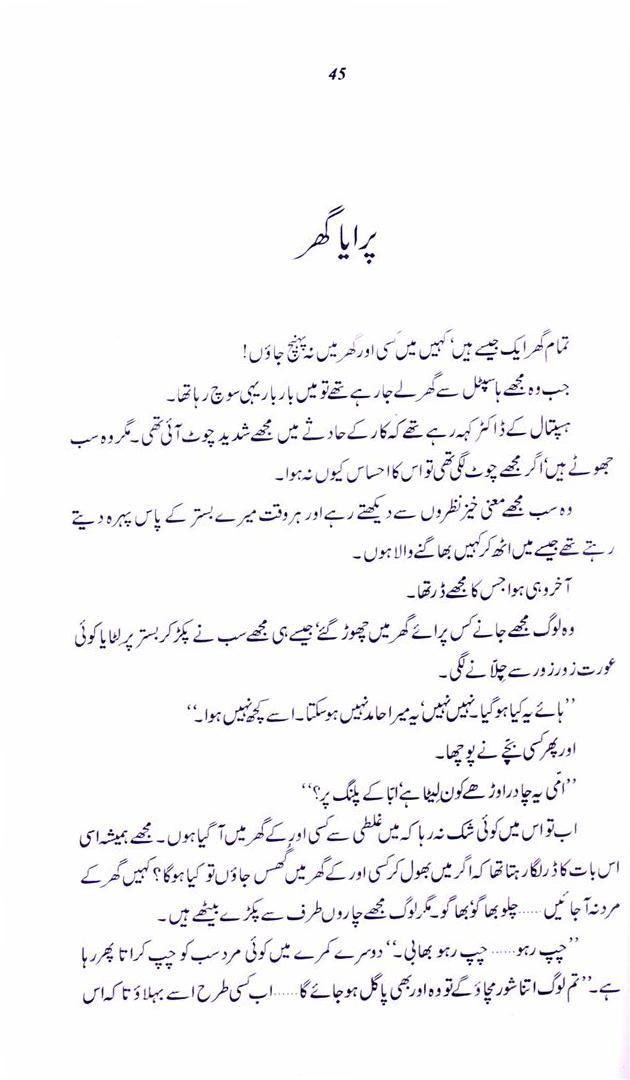 45
پرایا گھر
تمام گھر ایک جیسے ہیں‘ کہیں میں کسی اور گھر میں نہ پہنچ جاؤں!
جب وہ مجھے ہاسپٹل سے گھر لے جا رہے تھے تو میں بار بار یہی سوچ رہا تھا۔
ہسپتال کے ڈاکٹر کہہ رہے تھے کہ کار کے حادثے میں مجھے شدید چوٹ آئی تھی۔ مگر وہ سب
جھوٹے ہیں‘ اگر مجھے چوٹ لگی تھی تو اس کا احساس کیوں نہ ہوا۔
وہ سب مجھے معنی خیز نظروں سے دیکھتے رہے اور ہر وقت میرے بستر کے پاس پہرہ دیتے
رہتے تھے جیسے میں اٹھ کر کہیں بھاگنے والا ہوں۔
آخر وہی ہوا جس کا مجھے ڈر تھا۔
وہ لوگ مجھے جانے کس پرائے گھر میں چھوڑ گئے‘ جیسے ہی مجھے سب نے پکڑ کر بستر پر لِٹایا کوئی
عورت زور زور سے چلّانے لگی۔
’’ہائے یہ کیا ہو گیا۔ نہیں نہیں‘ یہ میرا حامد نہیں ہو سکتا۔ اسے کچھ نہیں ہوا۔‘‘
اور پھر کسی بچّے نے پوچھا۔
’’امّی یہ چادر اوڑھے کون لیٹا ہے‘ ابّا کے پلنگ پر؟‘‘
اب تو اس میں کوئی شک نہ رہا کہ میں غلطی سے کسی اور کے گھر میں آ گیا ہوں۔ مجھے ہمیشہ اسی
اس بات کا ڈر لگا رہتا تھا کہ اگر میں بھول کر کسی اور کے گھر میں گھس جاؤں تو کیا ہوگا؟ کہیں گھر کے
مرد نہ آ جائیں ...... چلو بھاگو‘ بھاگو۔ مگر لوگ مجھے چاروں طرف سے پکڑے بیٹھے ہیں۔
’’چپ رہو ...... چپ رہو بھابی۔‘‘ دوسرے کمرے میں کوئی مرد سب کو چپ کراتا پھر رہا
ہے۔ ’’تم لوگ اتنا شور مچاؤ گے تو وہ اور بھی پاگل ہو جائے گا ...... اب کسی طرح اسے بہلاؤ تا کہ اس